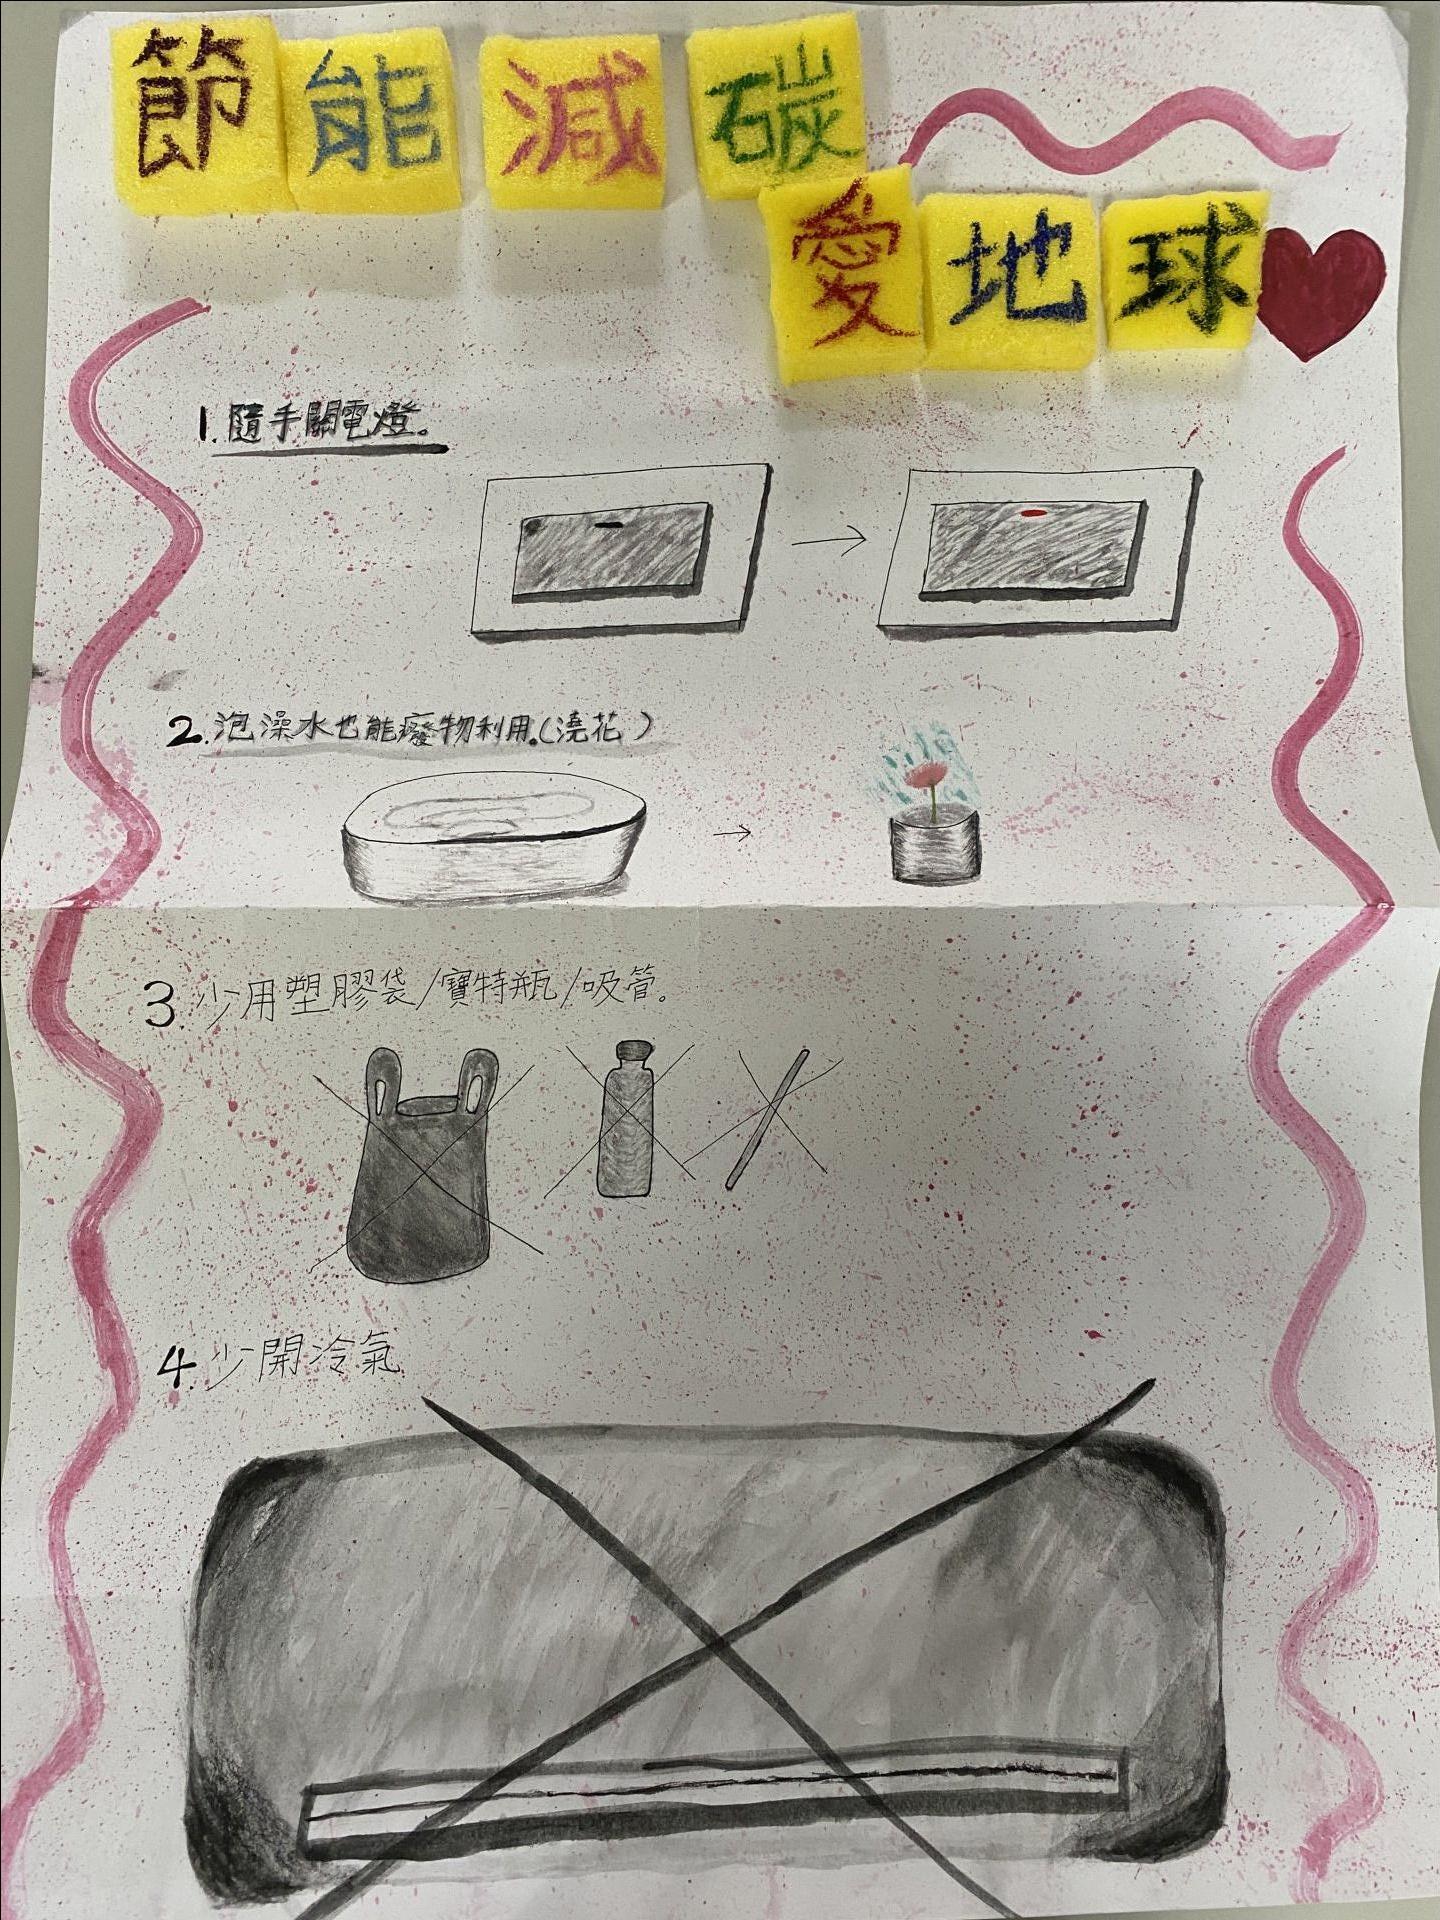 節能減碳
愛地球
1.隨手關電燈。
2.泡澡水也能廢物利用。(澆花)
3.少用塑膠袋/寶特瓶/吸管。
4.少開冷氣